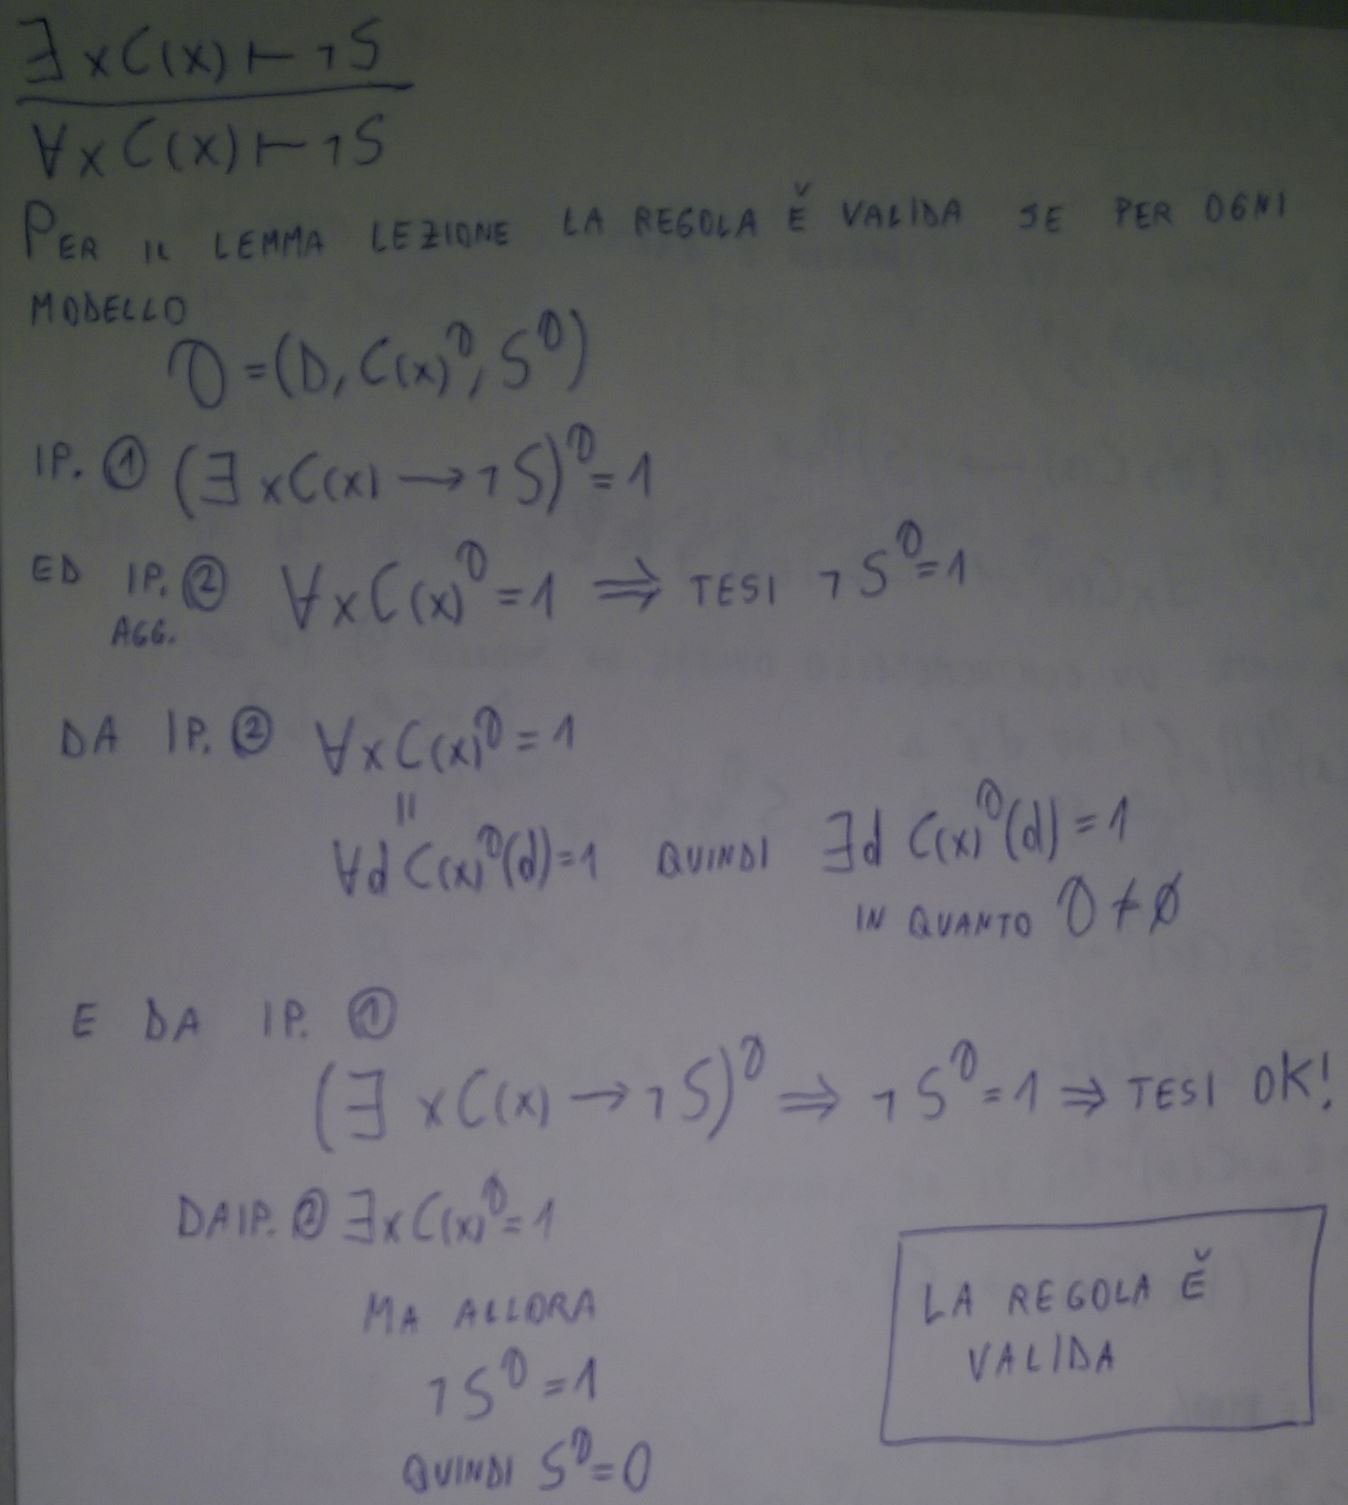 ∃xC(x)⊢¬S
∀xC(x)⊢¬S
PER IL LEMMA LEZIONE LA REGOLA È VALIDA SE PER OGNI
MODELLO
D=(D, C(x)ᴰ, Sᴰ)
IP. ① (∃xC(x)→¬S)ᴰ=1
ED IP. ② ∀xC(x)ᴰ=1 ⇒ TESI ¬Sᴰ=1
AGG.
DA IP. ② ∀xC(x)ᴰ=1
||
∀d C(x)ᴰ(d)=1 QUINDI ∃d C(x)ᴰ(d)=1
IN QUANTO D≠∅
E DA IP. ①
(∃xC(x)→¬S)ᴰ ⇒ ¬Sᴰ=1 ⇒ TESI OK!
DA IP. ② ∃xC(x)ᴰ=1
MA ALLORA
¬Sᴰ=1
QUINDI Sᴰ=0
LA REGOLA È
VALIDA